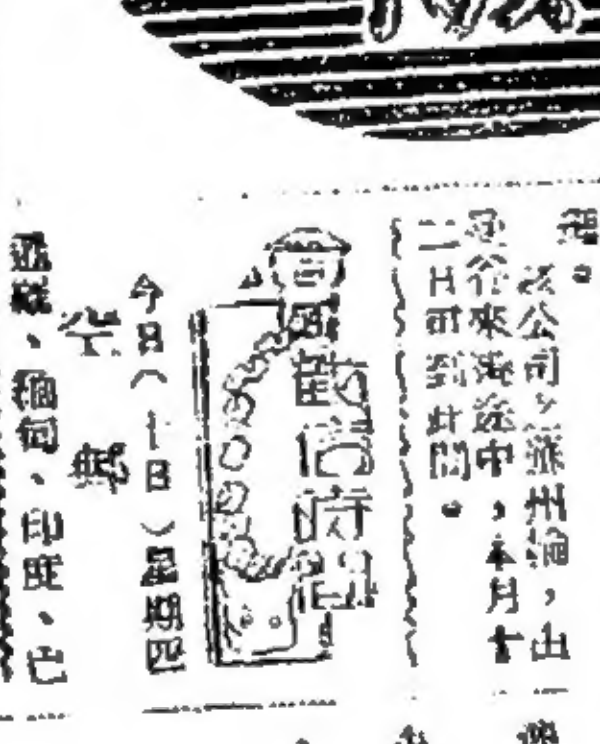 該公司之滿州輪，由
來港途中，本月十
二日可到此間。
截信時間
今日（十日）星期四
空郵
暹羅、緬甸、印度、亡